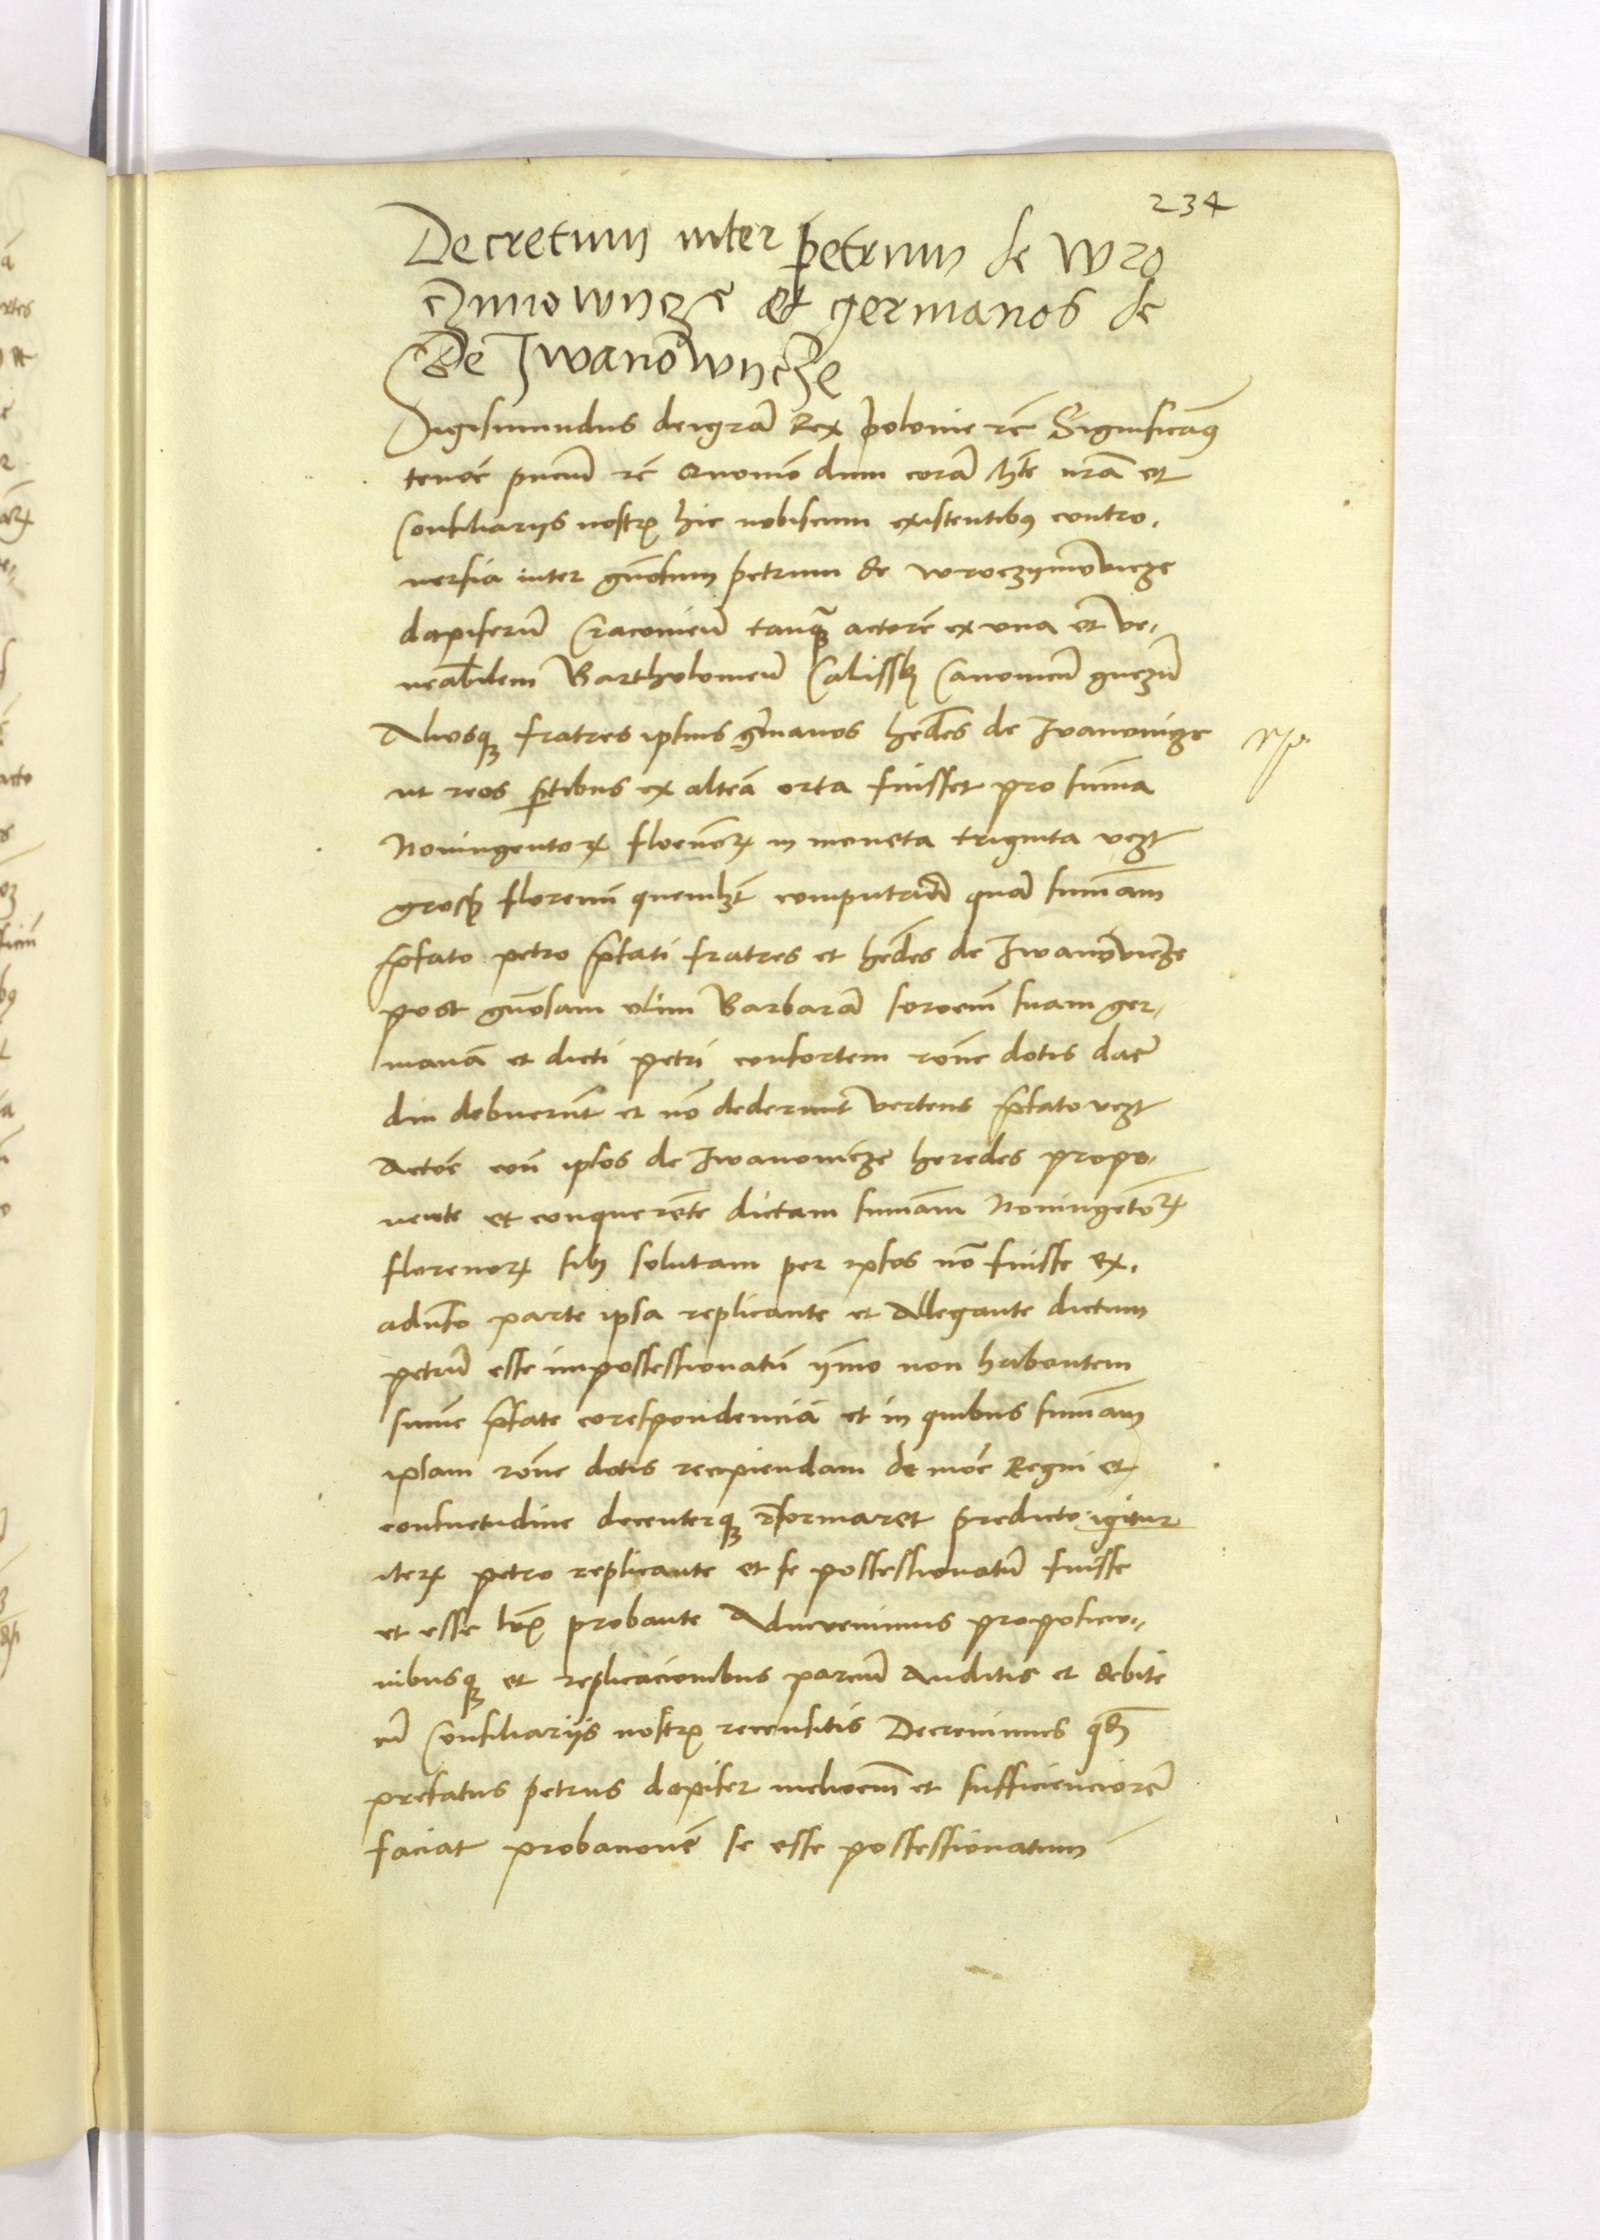 234
Decretum inter petrum de Wro
czimowycze et germanos de
de Iwanowycze
Sigismundus dei gra Rex polonie rc Significam9
tenore pncium rc Quomo dum cora Mte nra et
Consiliarijs nostris hic nobiscum existentib9 contro,
uersia inter gnosum petrum de wroczymowicze
dapiferu Cracouien tanq actore ex vna et ve,
nerabilem Bartholomeu Calissky Canonicu gnezn
Aliosq fratres ipsius gmanos hedes de Ivanovicze
ut reos ptibus ex altea orta fuisset pro suma
Noningentor florenor in moneta triginta vcz
gross florenu quemlzt computando qua summam
pfato petro pfati fratres et hedes de Iwanowicze
post gnosam olim Barbara sororem suam ger,
mana et dicti petri consortem rone dotis dare
diu debuerut et no dederunt vertens pfato vcz
Actore con ipsos de Iwanowicze heredes propo,
nente et conquerete dictam summam Noningetor
florenor sibi solutam per ipsos no fuisse ex,
aduerso parte ipsa replicante et Allegante dictum
petru esse impossessionatu ymo non habentem
sume pfate corespondencia et in quibus summam
ipsam rone dotis recipiendam de more Regni et
consuetudine decenterq reformaret predicto igitur
iter petro replicante et se possessionatu fuisse
et esse probante Aduenimus proposicio,
nibusq et replicacionibus parciu Auditis et debite
cu Consiliarijs nostris recensitis Decreuimus qd
prefatus petrus dapifer meliorem et sufficienciore
faciat probacione se esse possessionatum